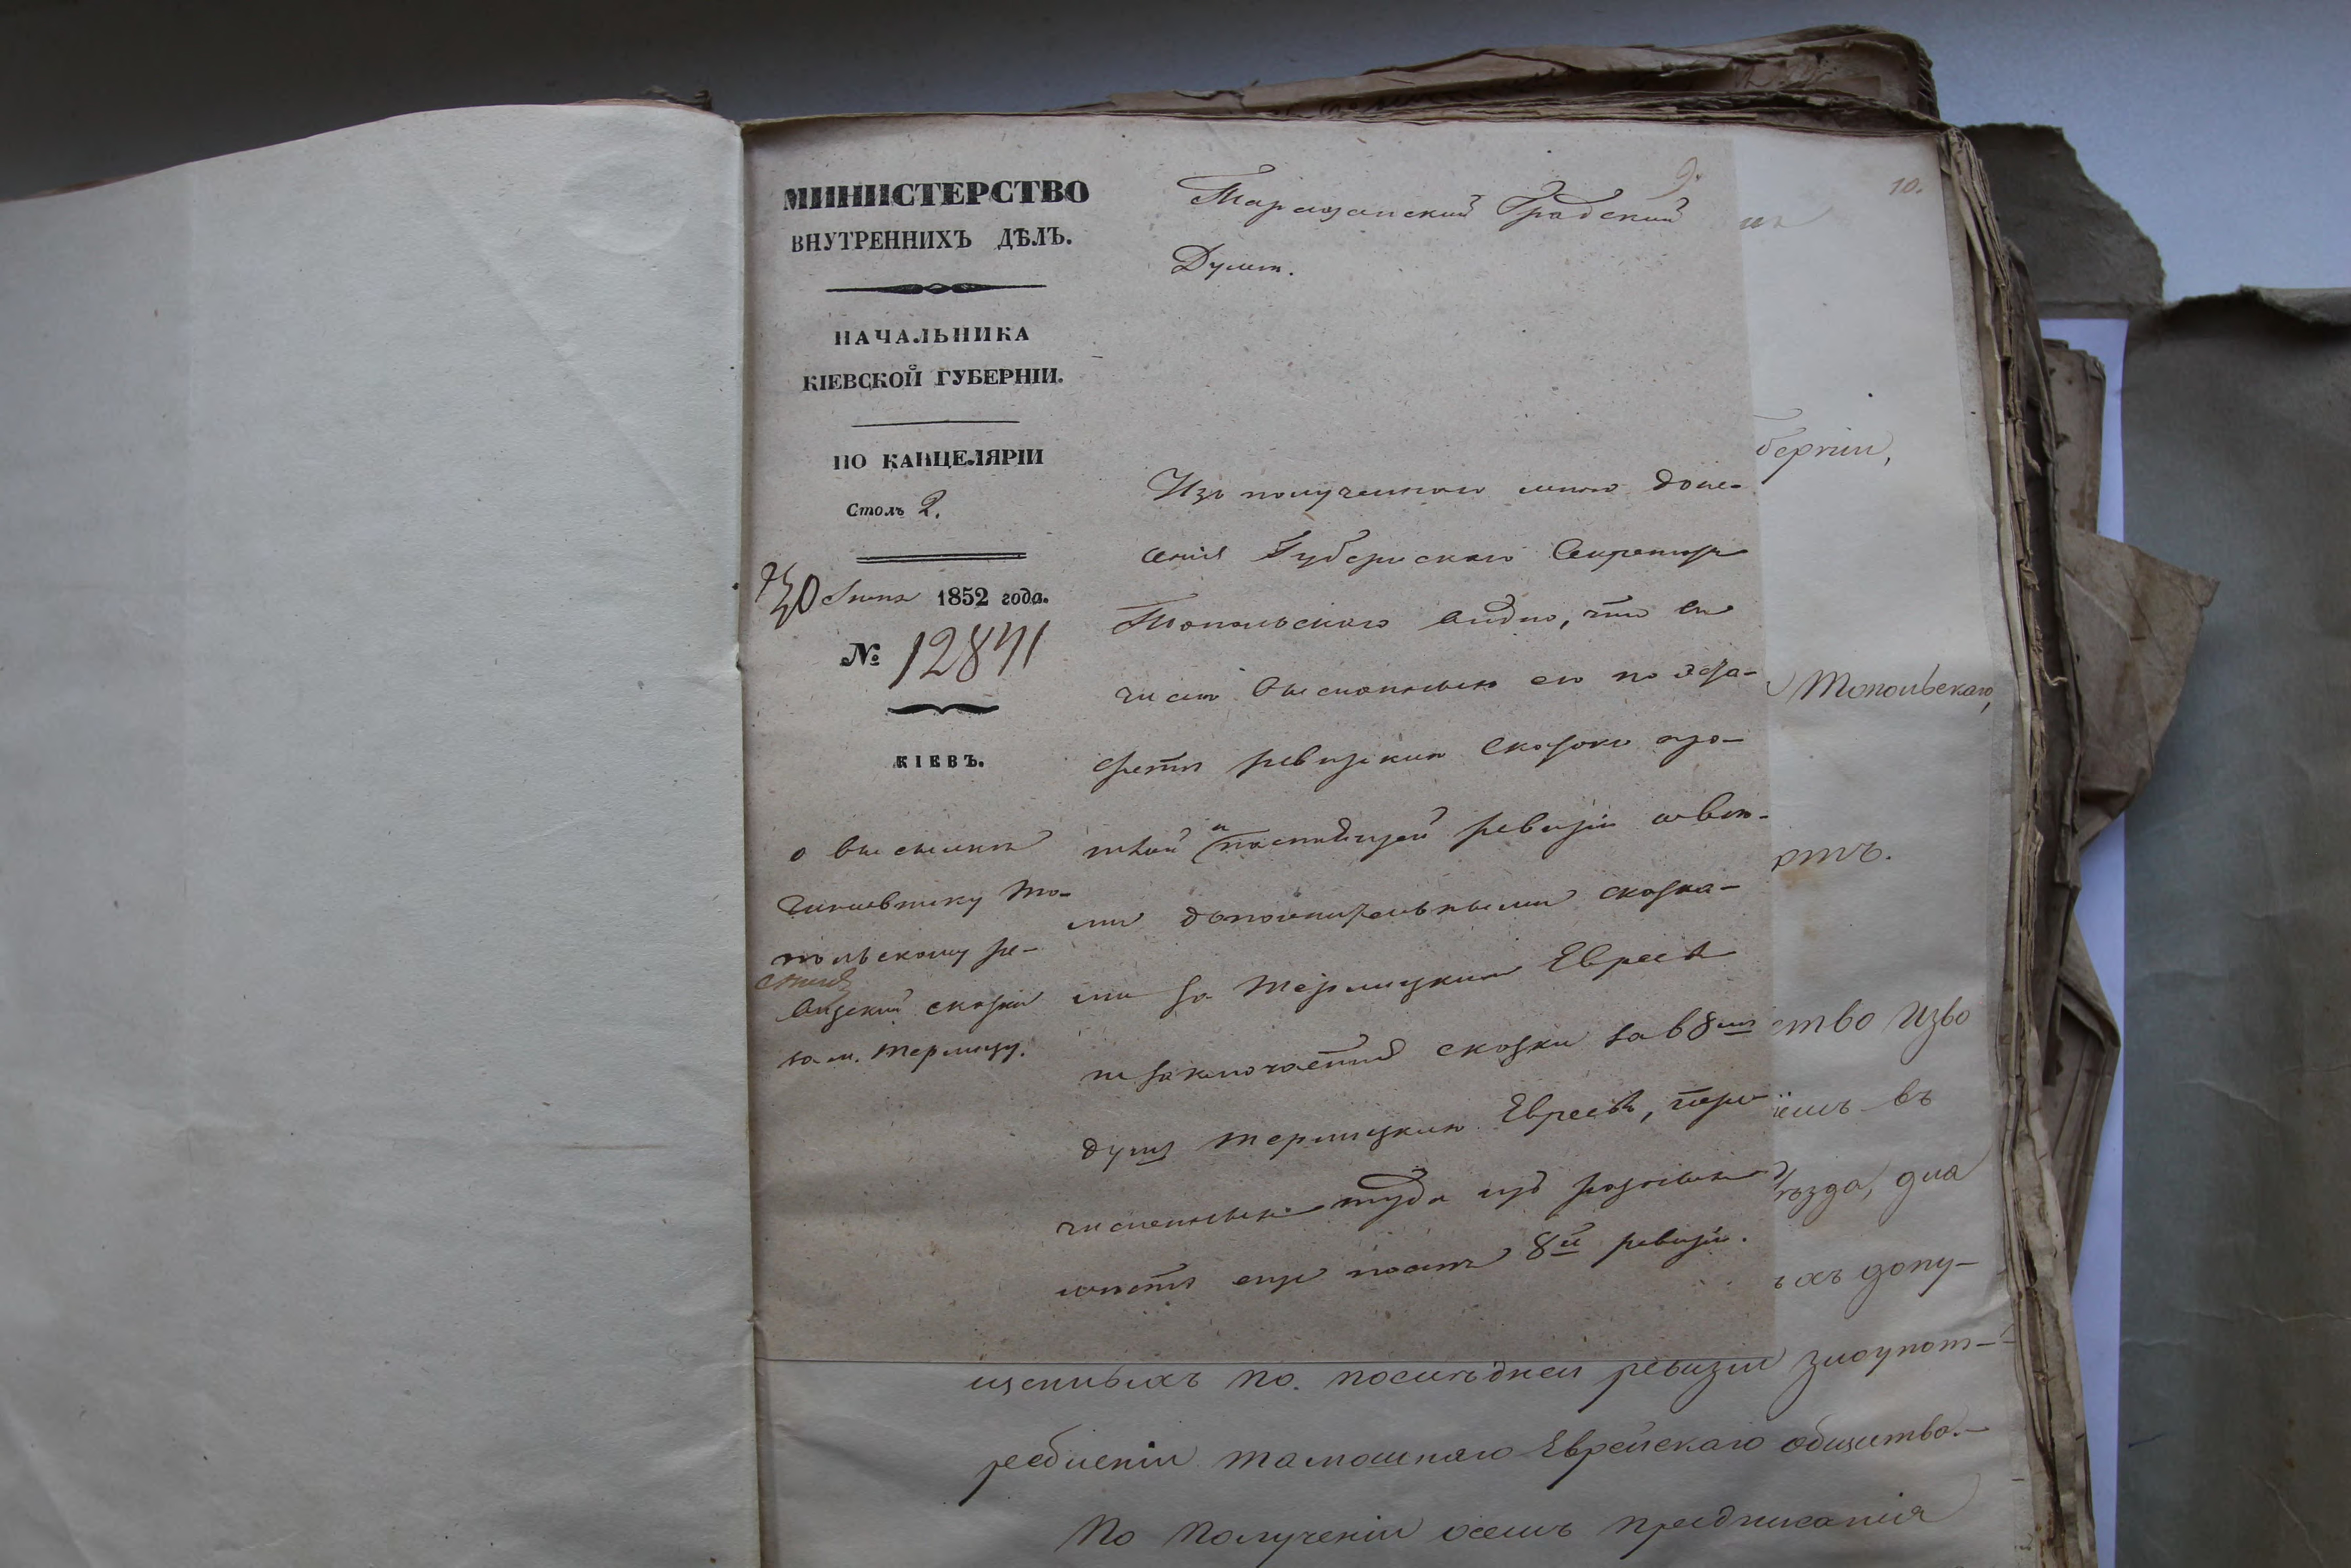 МИНИСТЕРСТВО
ВНУТРЕННИХЪ ДѢЛЪ.
НАЧАЛЬНИКА
КІЕВСКОЙ ГУБЕРНІИ.
ПО КАНЦЕЛЯРІИ
Столъ 2.
30 Іюня 1852 года.
№ 12841
КІЕВЪ.
о высылкѣ
Чиновнику То-
польскому ре-
визскихъ сказки
за м. Тетмицу.
9.
Таращанской Градской
Думѣ.
Изъ полученнаго мною доне-
сенія Губернскаго Секретаря
Топольскаго видно, что въ
числѣ высланныхъ ему по
ревизскихъ сказокъ
и послѣдней ревизіи
ми дополнительными сказка-
ми за Евреевъ
не заключается сказки за 88
душъ Евреевъ, пере-
численныхъ туда изъ разныхъ
мѣстъ еще послѣ 8й ревизіи.
10.
берніи,
Топольскаго,
ртъ.
ство Изво
емъ въ
ѣзда, для
ыхъ допу-
щенныхъ по послѣдней ревизіи злоупот-
ребленіи тамошняго Еврейскаго общества.—
По полученіи семъ предписанія